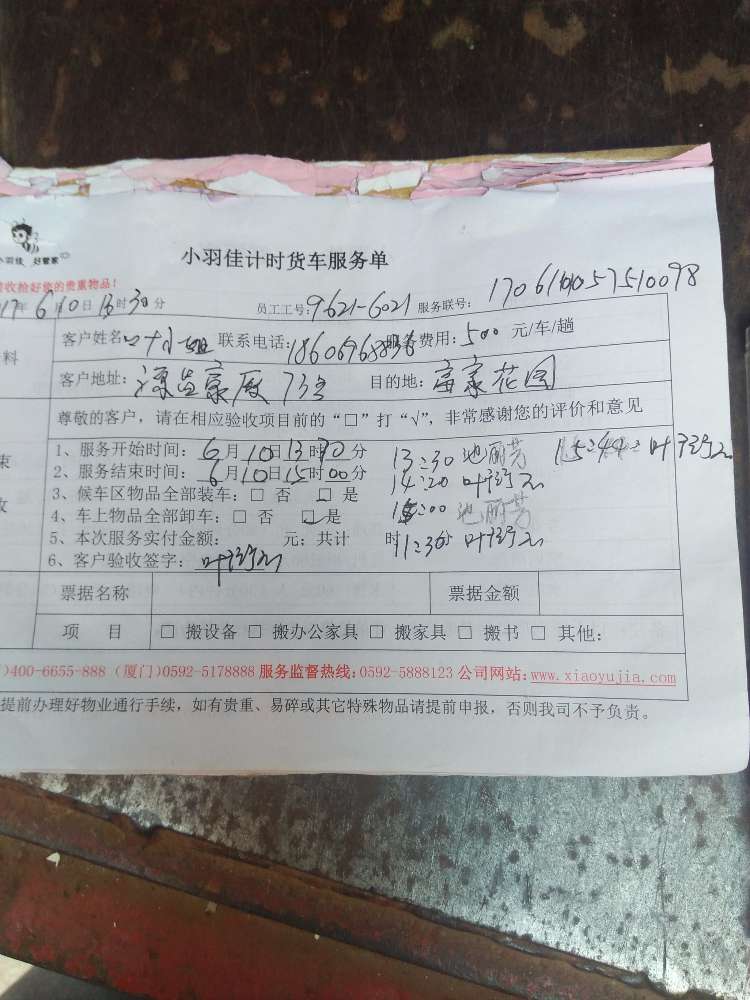 小羽佳 好管家
小羽佳计时货车服务单
收拾好您的贵重物品!
17年6月10日13时30分 员工工号:9621-6021 服务联号:
料
客户姓名 叶小姐 联系电话: 服务费用:500 元/车/趟
客户地址: 733 目的地:富豪花园
尊敬的客户,请在相应验收项目前的“□”打“√”,非常感谢您的评价和意见
束
1、服务开始时间:6月10日13时30分 13:30 池丽芳 15:44
2、服务结束时间:6月10日15时00分 14:20
3、候车区物品全部装车:□ 否 □ 是
收
4、车上物品全部卸车:□ 否 ☑是 15:00 池丽芳
5、本次服务实付金额: 元;共计 时 分
6、客户验收签字:
票据名称 票据金额
项 目 □ 搬设备 □ 搬办公家具 □ 搬家具 □ 搬书 □ 其他:
)400-6655-888 (厦门)0592-5178888 服务监督热线:0592-5888123 公司网站:www.xiaoyujia.com
提前办理好物业通行手续,如有贵重、易碎或其它特殊物品请提前申报,否则我司不予负责。